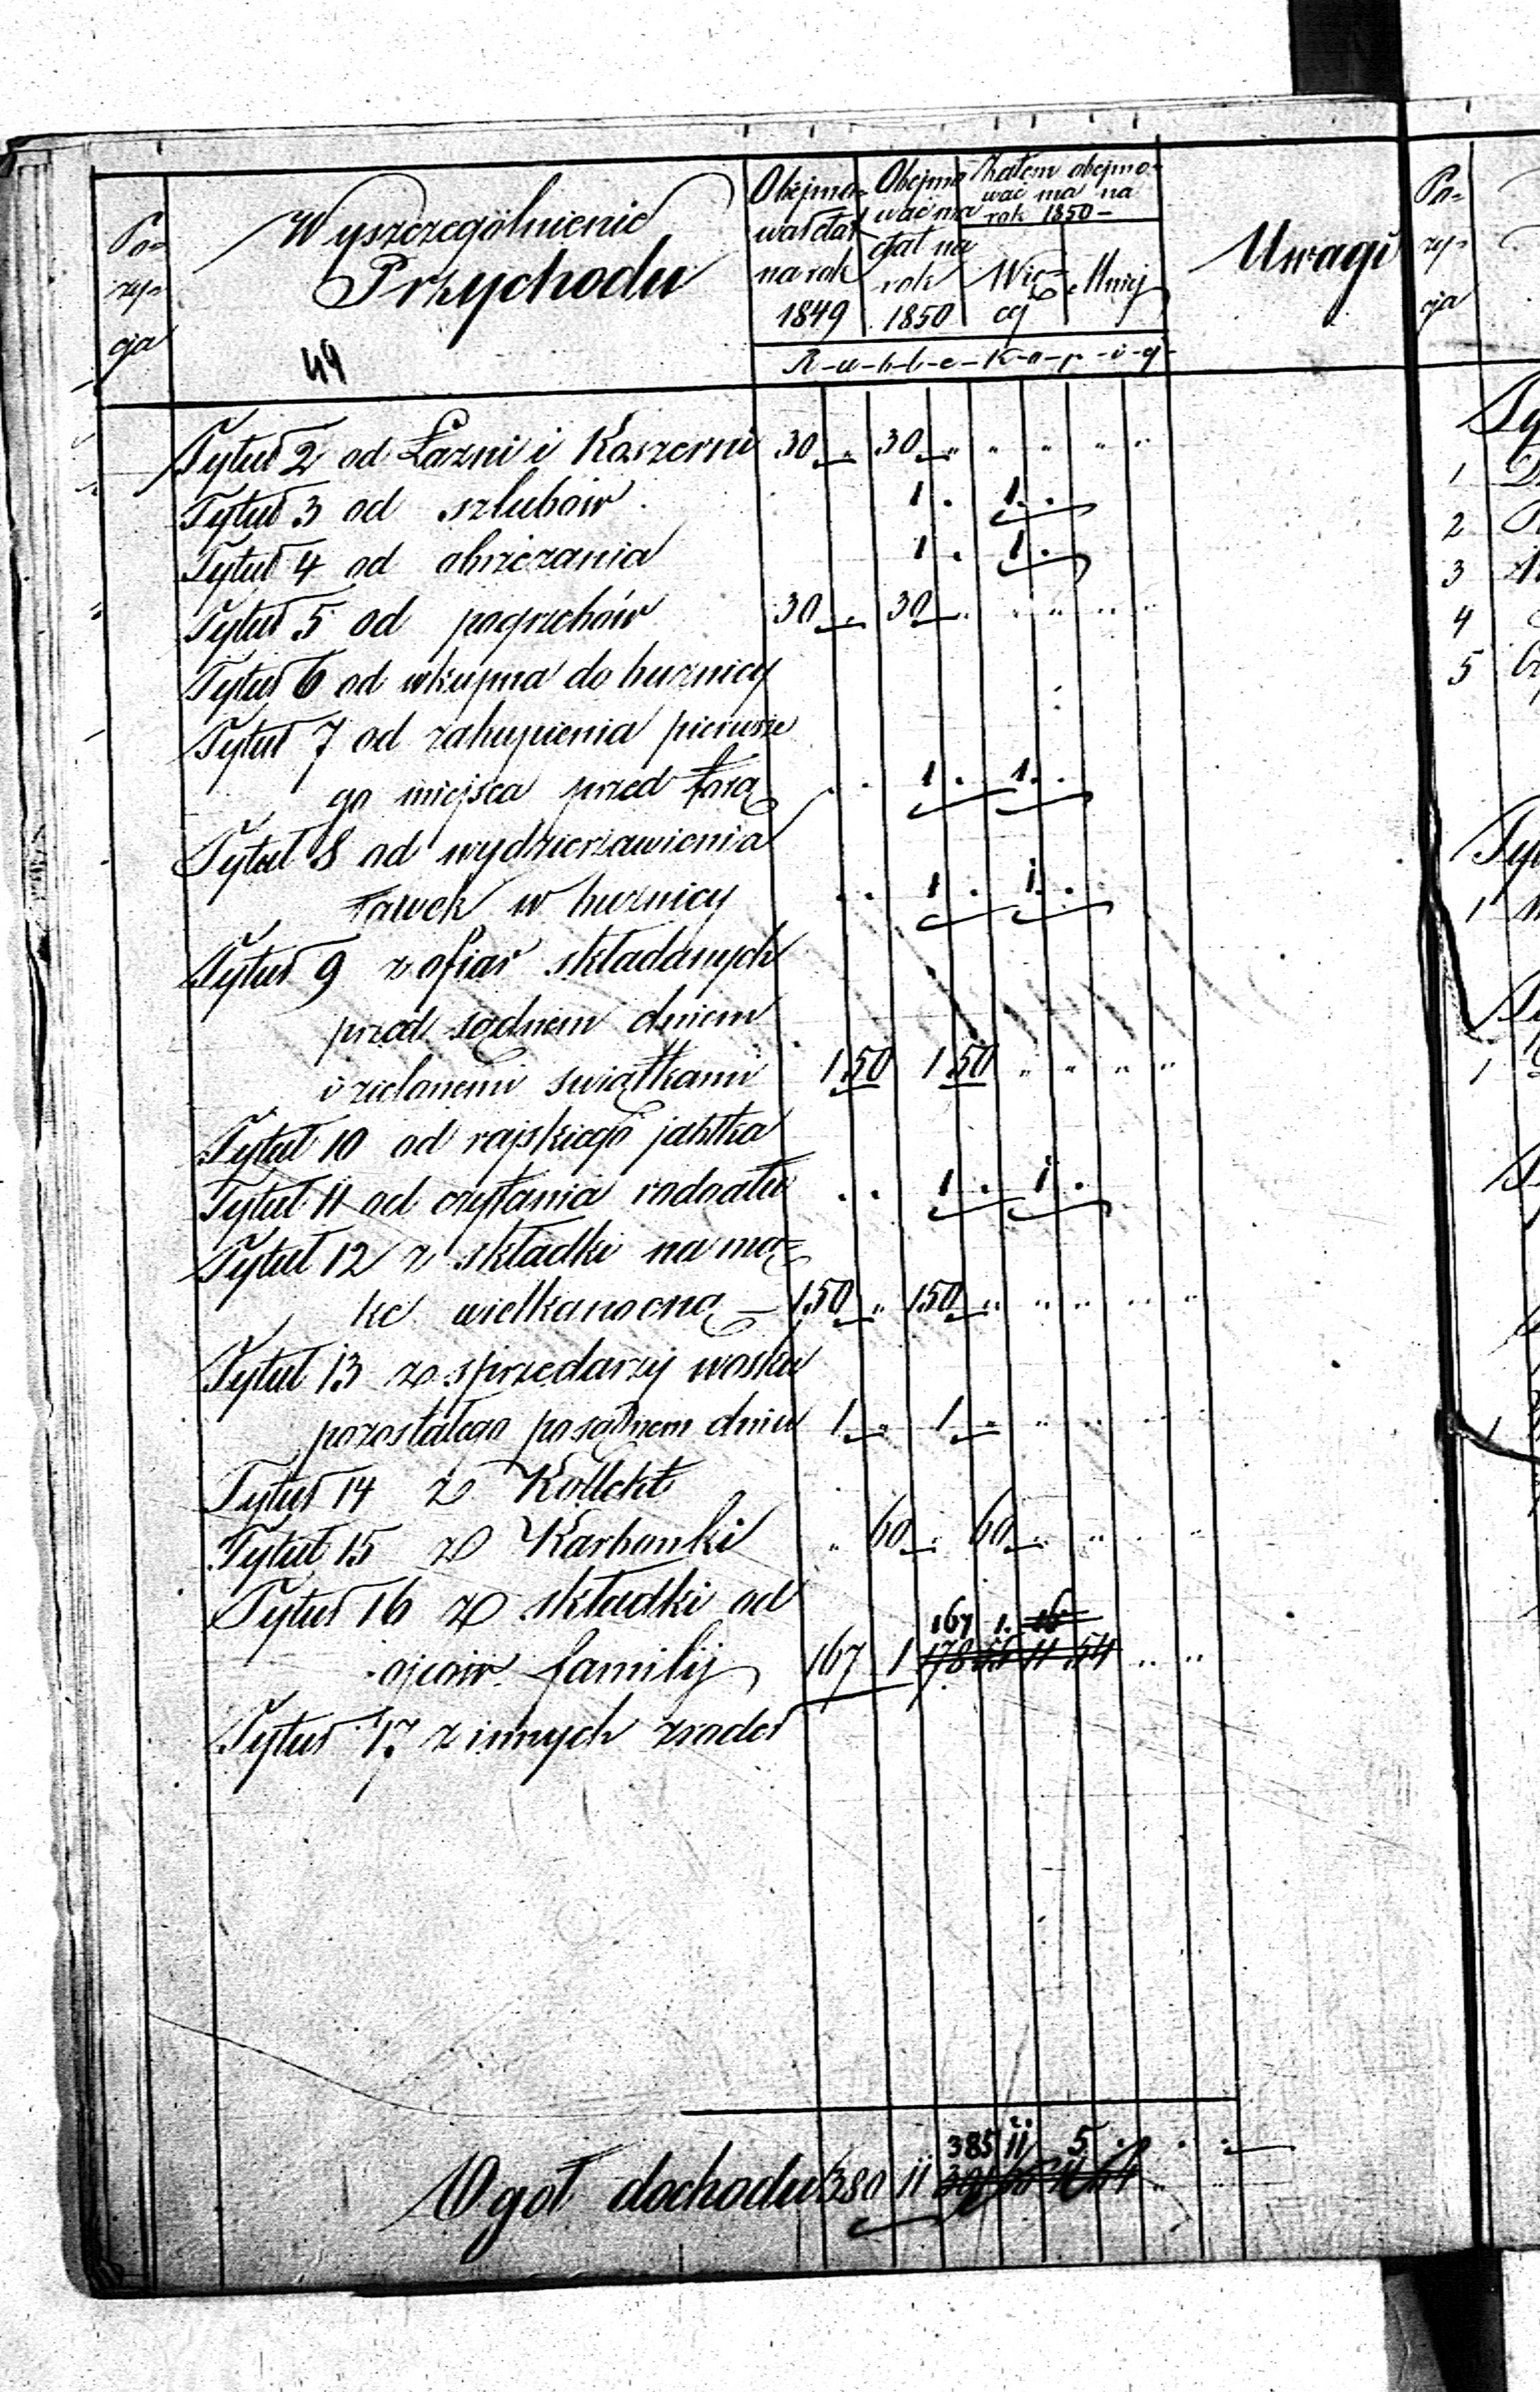 Po=
zy=
cja
Wyszczególnienie
Przychodu
49
Obejmo=
wał etat
na rok
1849
Obejmo
wać ma
etat na
rok
1850
Zatem obejmo=
wać ma na
rok 1850 –
Wię=
cej
Mniej
R-u-b-l-e - K-o-p-i-ej-
Uwagi
Po=
zy=
cja
Tytuł 2 od Łazni i Koszerni 30 „ 30 „ „ „ „ „
Tytuł 3 od szlubów 1 . 1 .
Tytuł 4 od obrzezania 1 . 1 .
Tytuł 5 od pogrzebów 30 „ 30 „ „ „ „ „
Tytuł 6 od wkupna do buznicy
Tytuł 7 od zakupienia pierwsze
go miejsca przed torą . . 1 . 1 .
Tytuł 8 od wydzierzawienia
ławek w buznicy . . 1 . 1 .
Tytuł 9 z ofiar składanych
przed sądnem dniem
i zielonemi swiątkami 1 50 1 50 „ „ „ „
Tytuł 10 od rajskiego jabłka
Tytuł 11 od czytania rodoału . . 1 . 1 .
Tytuł 12 z składki na mą=
kę wielkanocną – 150 „ 150 „ „ „ „ „
Tytuł 13 z sprzedarzy wosku
pozostałego po sądnem dniu 1 „ 1 „ „ „ „ „
Tytuł 14 z Kollekt
Tytuł 15 z Karbonki „ 60 „ 60 „ „ „ „
Tytuł 16 z składki od
167 1. 16
ojców familij 167 1 178 55 11 54 „ „
Tytuł 17 z innych zrodeł
385 11 5 . . .
Ogół dochodu 380 11
1
2
3
4
5
1
1